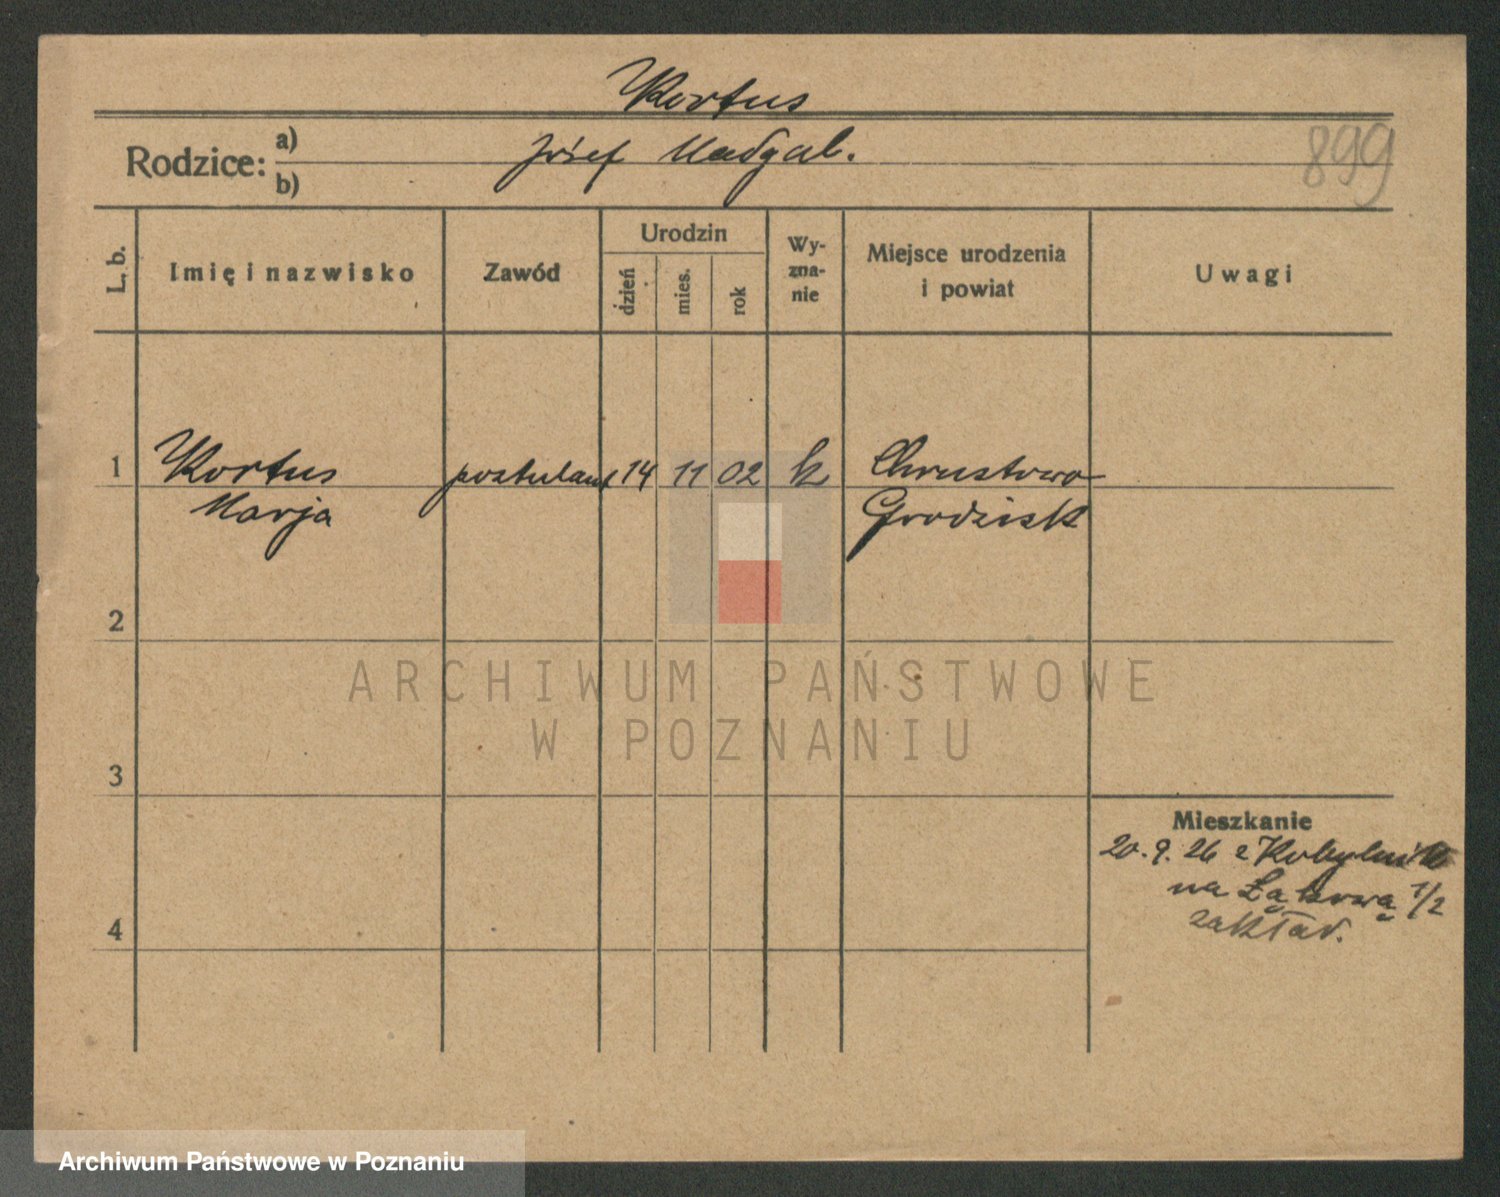 Kortus
Rodzice:
a)
Józef Madgal.
b)
899
L. b.
Imię i nazwisko
Zawód
Urodzin
dzień
mies.
rok
Wy-
zna-
nie
Miejsce urodzenia
i powiat
Uwagi
1 Kortus postulant 14 11 02 k Chrustowo
Marja Grodzisk
2
ARCHIWUM PAŃSTWOWE
W POZNANIU
3
Mieszkanie
20. 9. 26 z Kobylnik
na Łąkową 1/2
zakład.
4
Archiwum Państwowe w Poznaniu